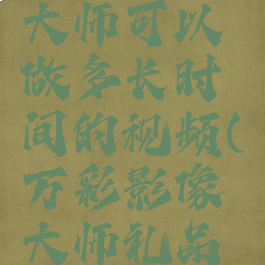 大师可以
做多长时
间的视频(
万彩影像
大师礼品